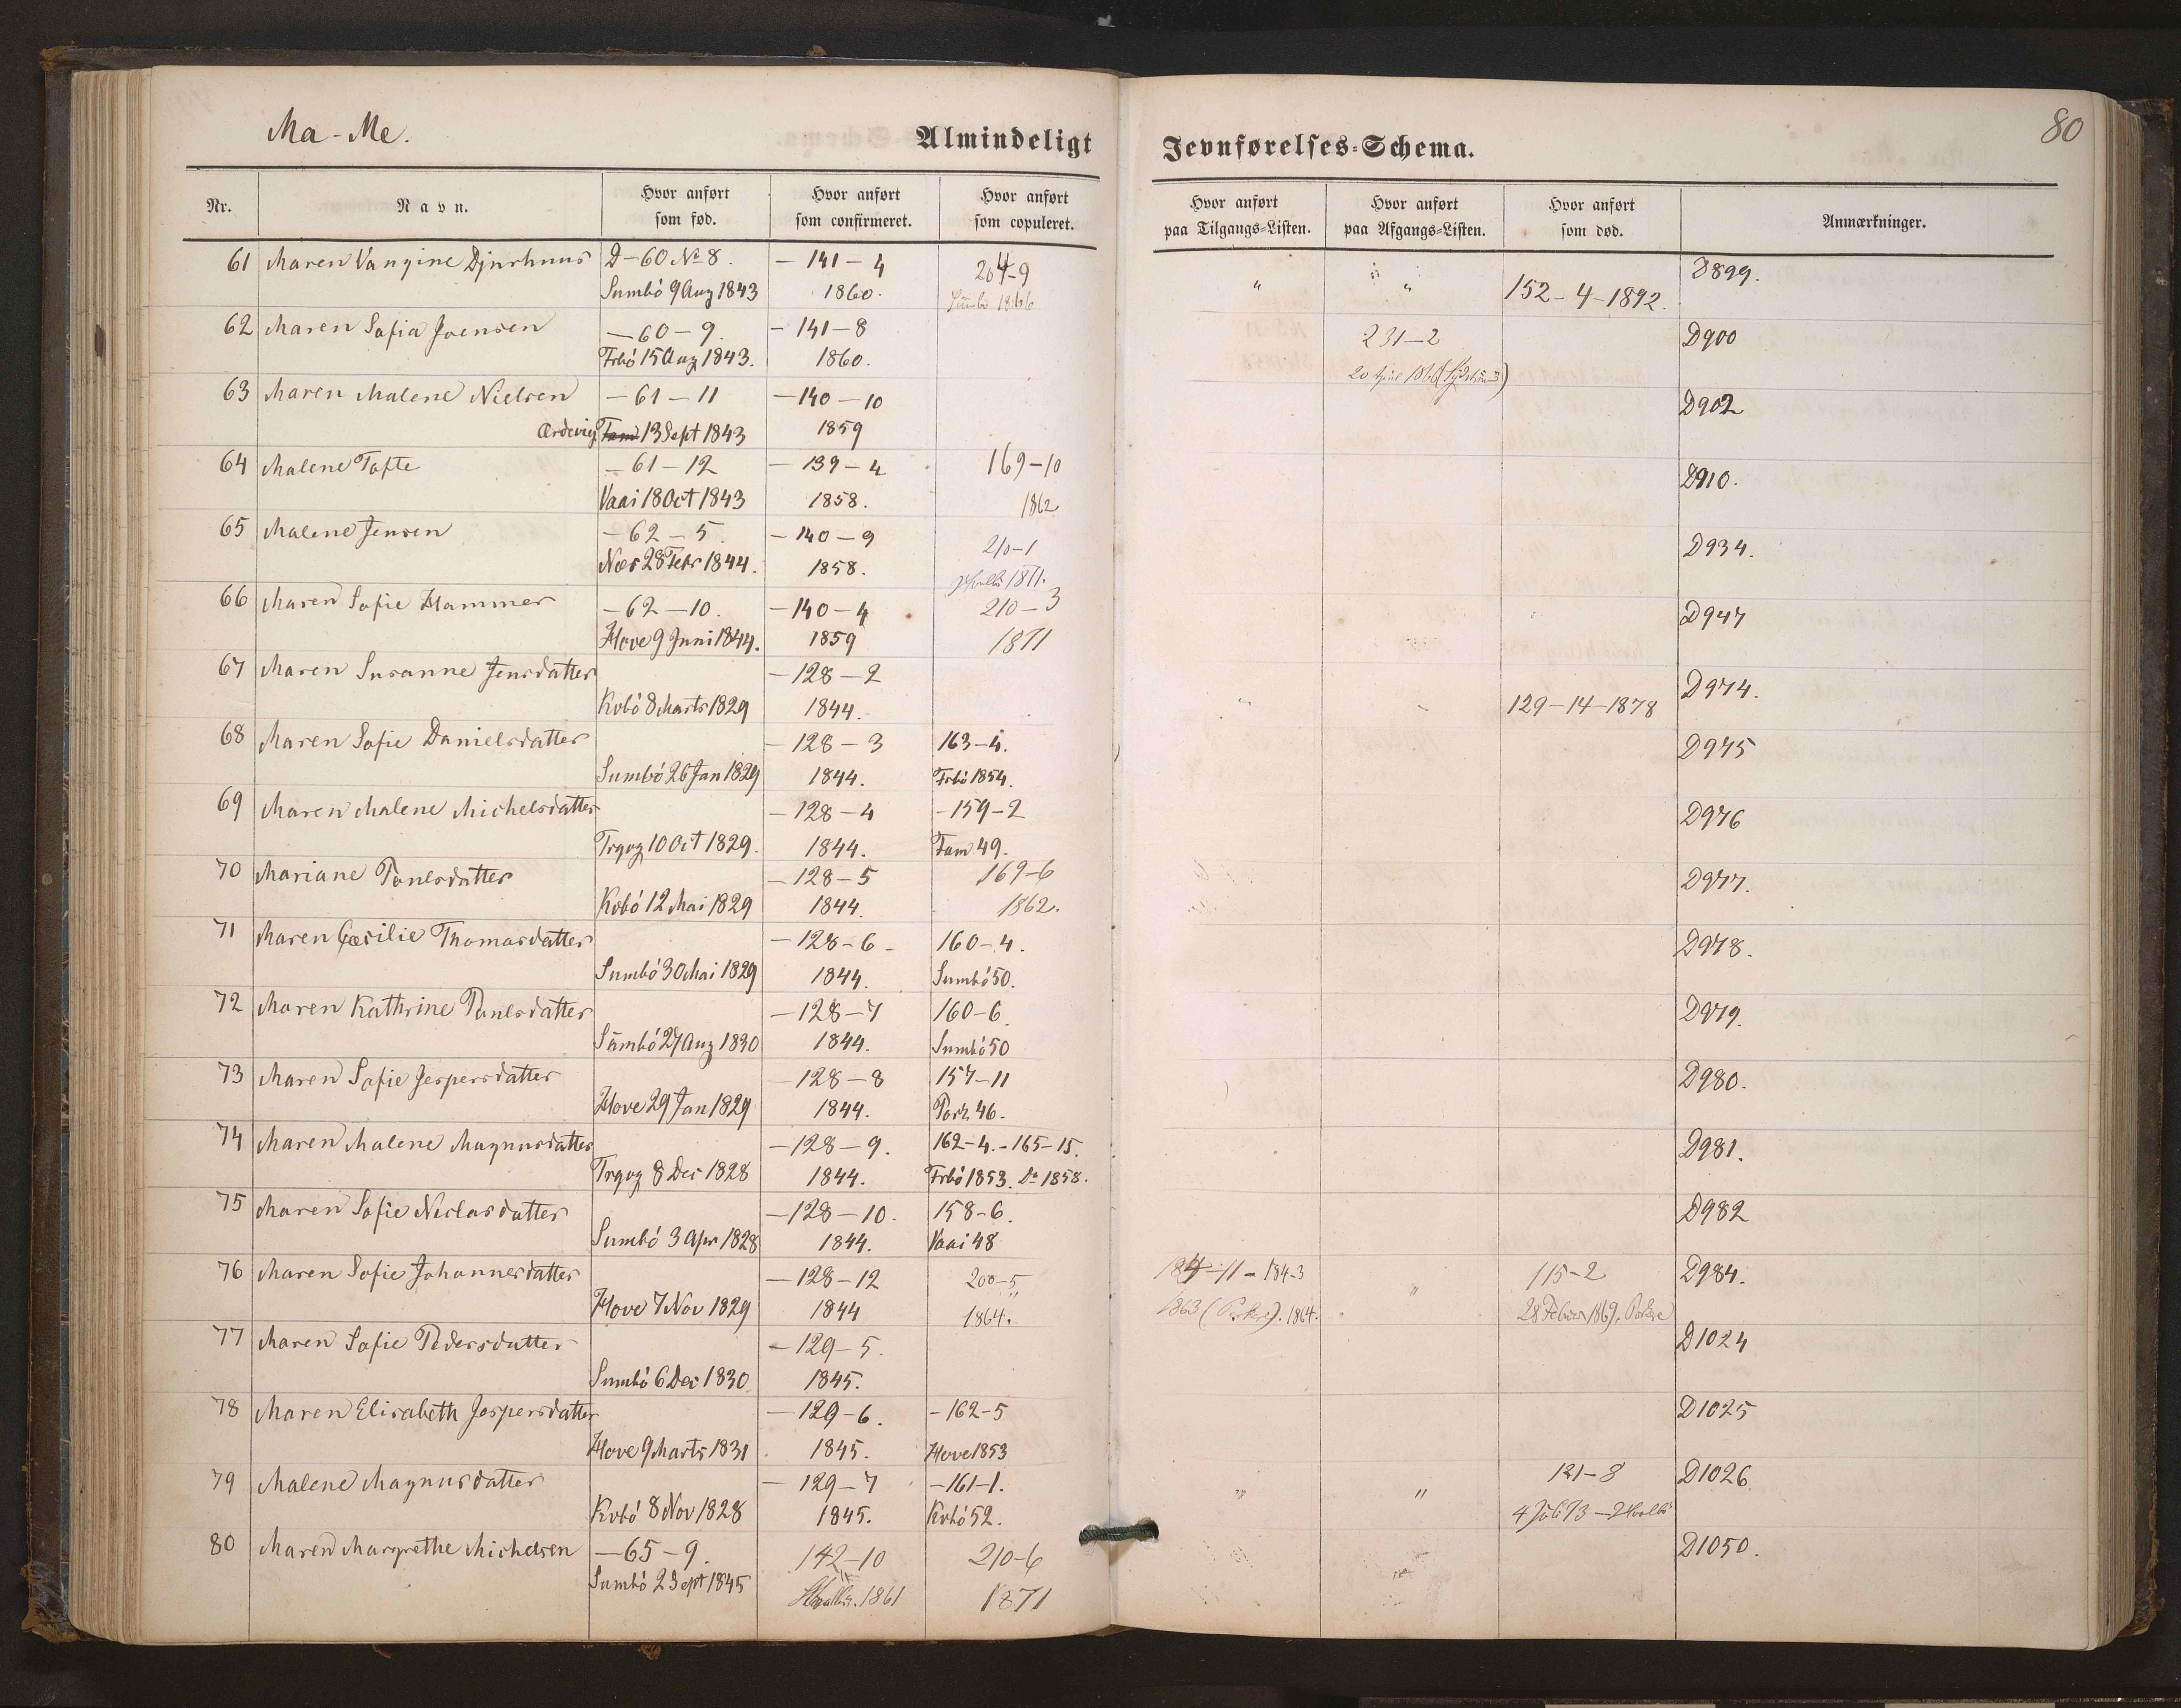 Ma-Me.
Almindeligt Jevnførelses-Schema.
80
Nr. Navn. Hvor anført som fød. Hvor anført som confirmeret. Hvor anført som copuleret. Hvor anført paa Tilgangs-Listen. Hvor anført paa Afgangs-Listen. Hvor anført som død. Anmærkninger.
61 Maren Vangine Djurhuus D-60 No 8. - 141-4 204-9 " " " D899.
Sumbó 9 Aug 1843 1860. Sumbó 1866 152-4-1892.
62 Maren Sofia Joensen -60-9. - 141-8 231-2 D900
Frbó 15 Aug 1843. 1860. 20 April 1866
63 Maren Malene Nielsen -61-11 -140-10 D902
Ørdevig Fam 13 Sept 1843 1859
64 Malene Tofte -61-12 -139-4 169-10 D910.
Vaai 18 Oct 1843 1858. 1862
65 Malene Jensen -62-5. -140-9 210-1 D934.
Næs 28 Febr 1844. 1858. Hvalbö 1871.
66 Maren Sofie Hammer -62-10. -140-4 210-3 D947
Hove 9 Juni 1844. 1859 1871
67 Maren Susanne Jensdatter -128-2 D974.
Kvbó 8 Marts 1829 1844. 129-14-1878
68 Maren Sofie Danielsdatter -128-3 163-4. D975
Sumbó 26 Jan 1829 1844. Frbó 1854.
69 Maren Malene Michelsdatter -128-4 -159-2 D976
Trgvg 10 Oct 1829. 1844. Fam 49.
70 Mariane Poulsdatter -128-5 169-6 D977.
Kvbó 12 Mai 1829 1844. 1862.
71 Maren Cæcilie Thomasdatter -128-6- 160-4. D978.
Sumbó 30 Mai 1829 1844. Sumbó 50.
72 Maren Kathrine Poulsdatter -128-7 160-6. D979.
Sumbó 27 Aug 1830 1844. Sumbó 50
73 Maren Sofie Jespersdatter 128-8 157-11 D980.
Hove 29 Jan 1829 1844. Pork. 46.
74 Maren Malene Magnusdatter -128-9. 162-4.-165-15. D981.
Trgvg 8 Dec 1828 1844. Frbó 1853. Do 1858.
75 Maren Sofie Niclasdatter -128-10. 158-6. D982
Sumbó 3 Apr 1828 1844. Vaai 48
76 Maren Sofie Johannesdatter -128-12 200-5 184-11-184-3 " 115-2 D984.
Hove 7 Nov 1829 1844 1864. 1863 (Porkere). 1864. 28 Februar 1869. Porkere
77 Maren Sofie Pedersdatter -129-5. D1024
Sumbó 6 Dec 1830 1845.
78 Maren Elisabeth Jespersdatter -129-6. -162-5 D1025
Hove 9 Marts 1831 1845. Hove 1853
79 Malene Magnusdatter -129-7 -161-1. " " 121-8 D1026
Kvbó 8 Nov 1828 1845. Kvbó 52. 4 Juli 73 - Hvalbö
80 Maren Margrethe Michelsen -65-9. 142-10 210-6 D1050.
Sumbó 2 Sept 1845 Hvalbö. 1861 1871